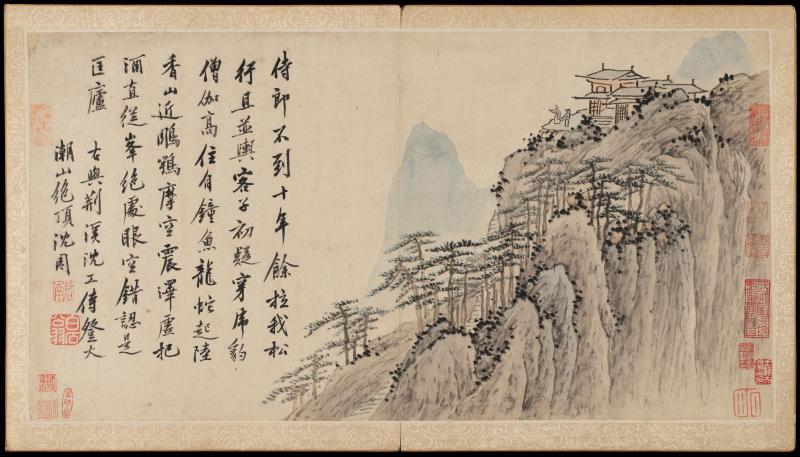 侍郎不到十年餘拉我松
行且並輿客子初疑穿虎豹
僧伽高住有鐘魚龍蛇起陸
香山近鵰鶚摩空震澤虛把
酒直從峯絕處眼空錯認是
匡廬
右與荆溪沈工侍登大
潮山絕頂沈周
啟南
白石翁